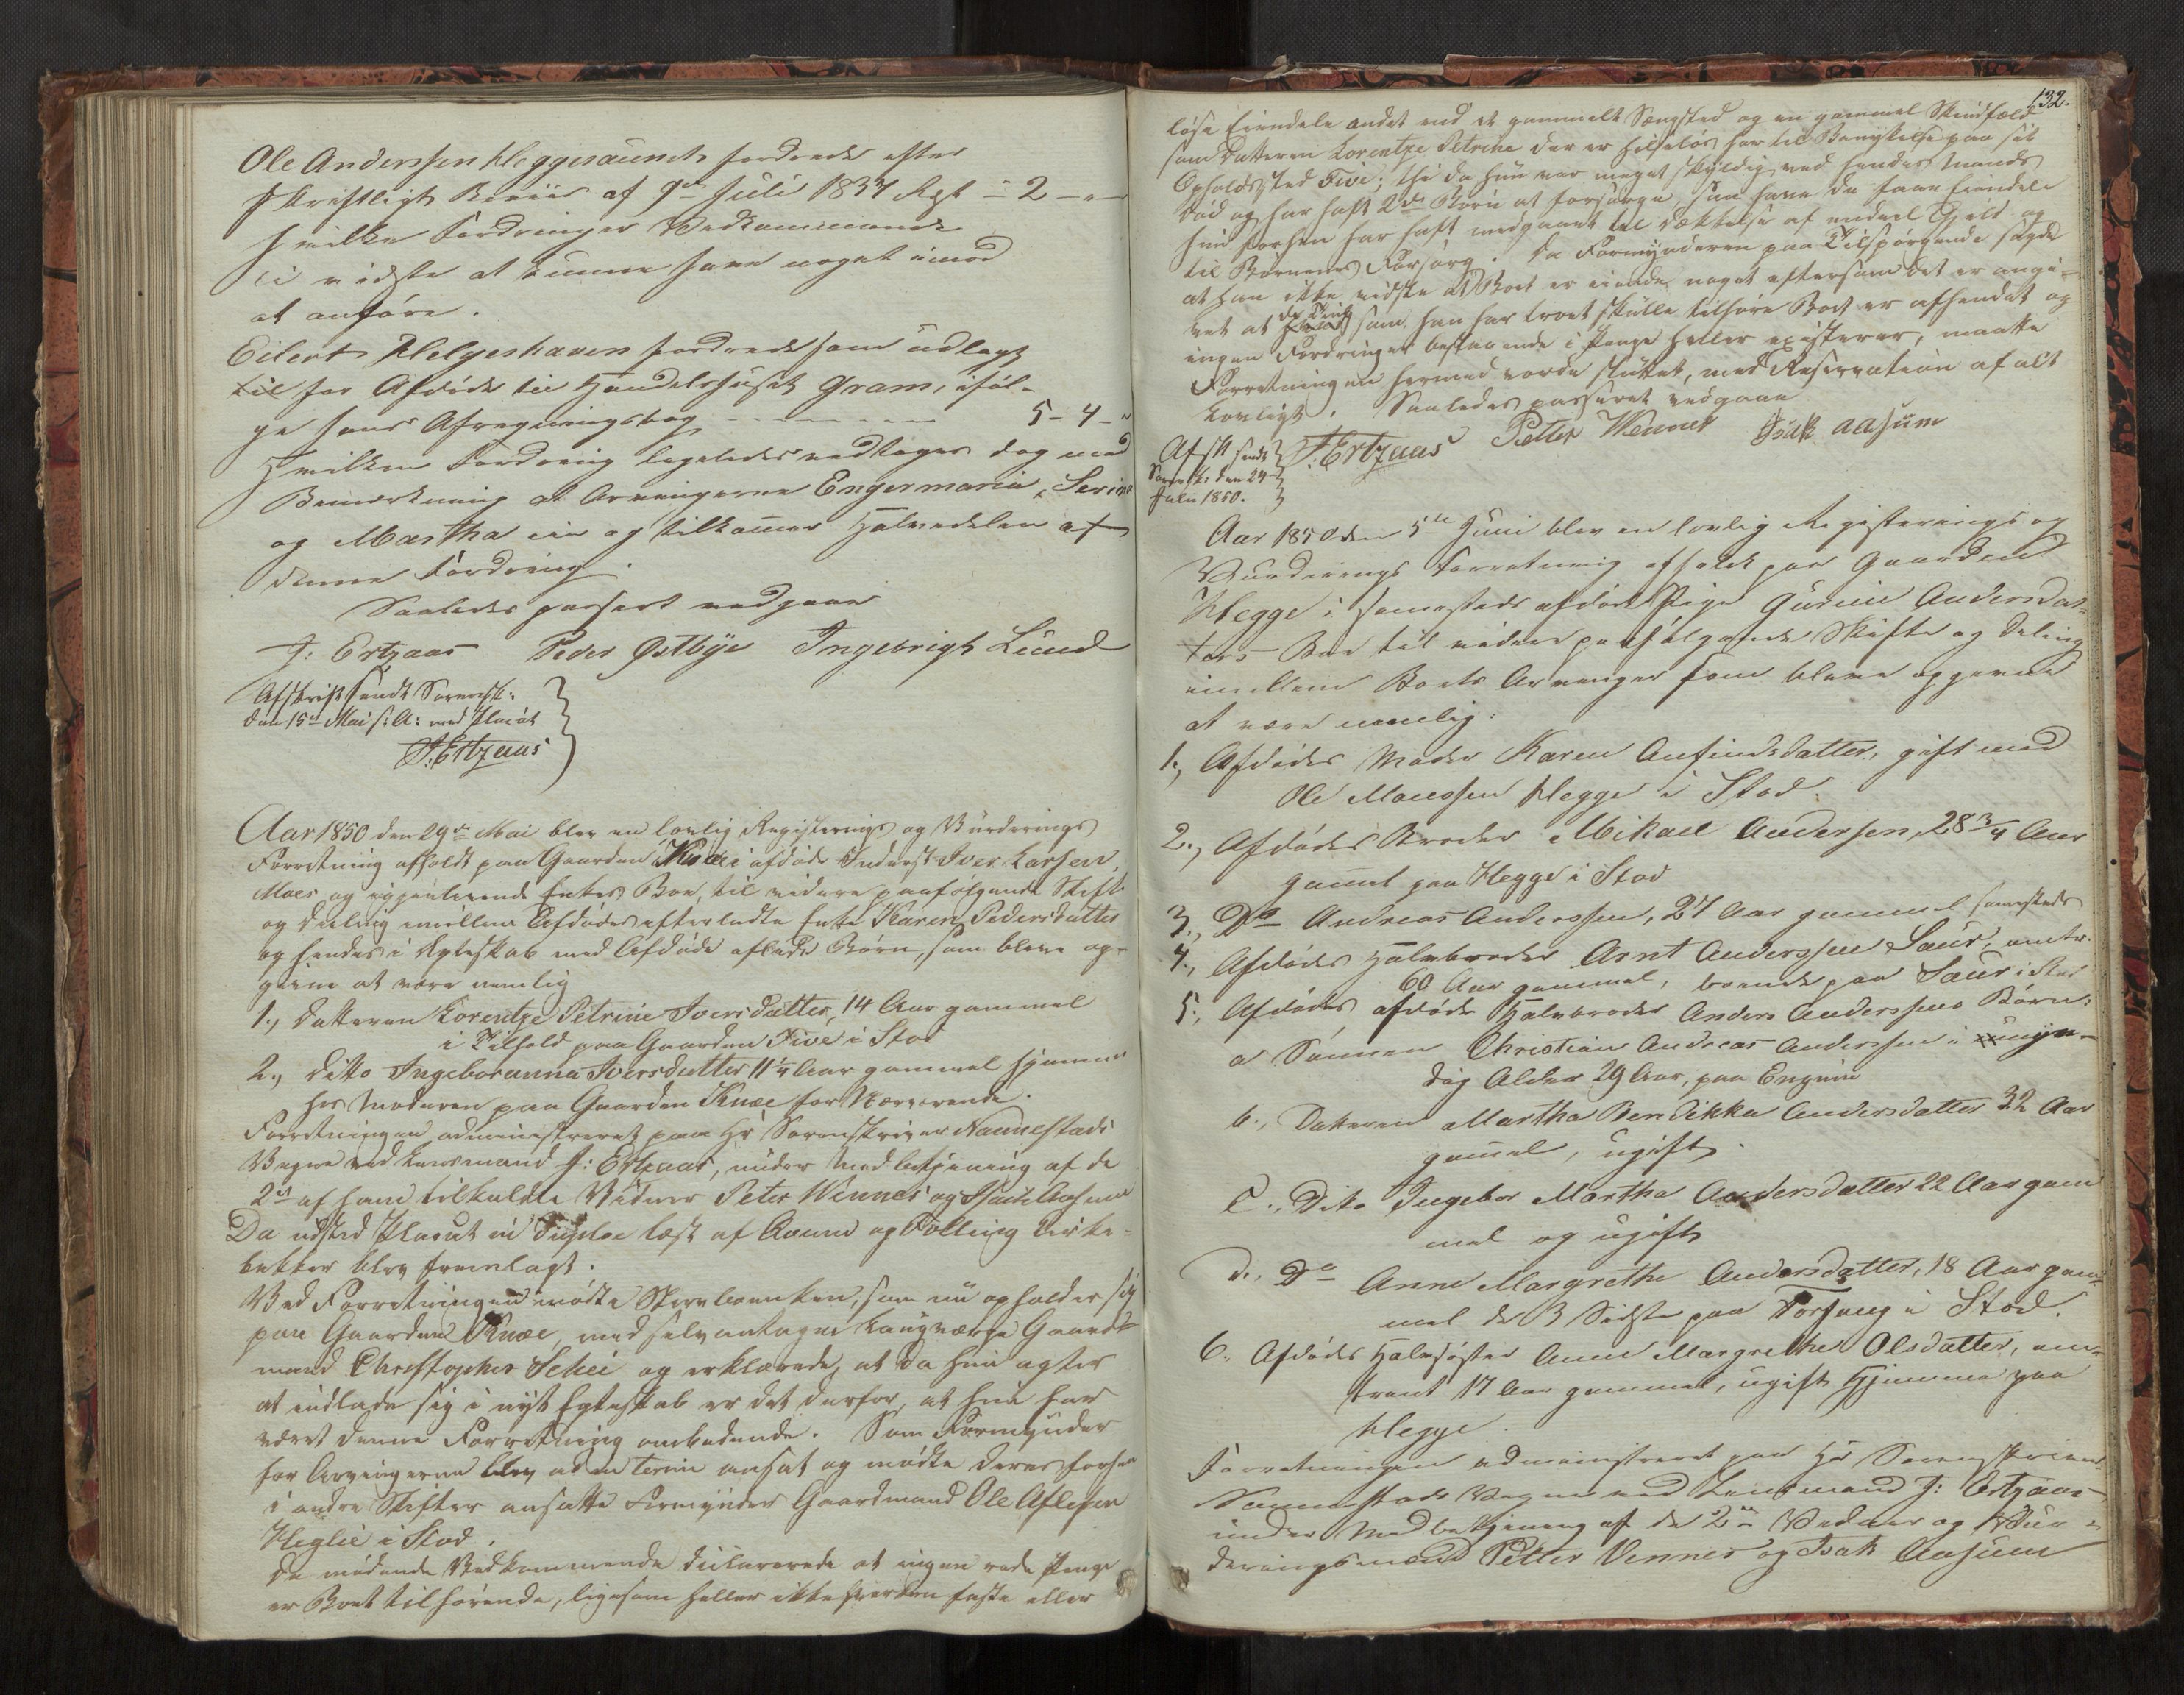 Ole Anderssen Heggesaunets fordrede efter
skriftligt Beviis af 9de Juli 1837 Rest - 2 - "
hvilke Fordringer Vedkommende
ei vidste at kunne have noget imod
at anføre.
Eilert Helgeshaven fordrede som udlagt
til for Afdøde til Handelshuset Gram, iføl-
ge hans Afregningsbog - - - - 5 - 4 - "
Hvilken Fordring ligeledes vedtoges dog med
Bemærkning at Arvingerne Engermaria, Serina
og Martha eie og tilkomer Halvedelen af
denne Fordring.
Saaledes passert vedgaaes
J: Ertzaas Peder Østbye Ingebrigt Lund
Afskrift sendt Sorensk:
den 15de Mai s: A: med Placat
J. Ertzaas
Aar 1850 den 29de Mai blev en lovlig Registerings og Vurderings
Forretning afholdt paa Gaarden Knæe i afdøde Inderst Iver Larsen
Moes og igjenlevende Enkes Boe, til videre paafølgende Skifte
og Deeling imellem Afdødes efterladte Enke Karen Pedersdatter
og hendes i Ægteskab med Afdøde aflede Børn, som bleve op-
givne at være nemlig
1., Datteren Lorentze Petrine Iversdatter, 14 Aar gammel
i Tilhold paa Gaarden Five i Stod
2., Ditto Ingeboranna Iversdatter 11 1/4 Aar gammel hjemme
hos Moderen paa Gaarden Knæe for Nærværende.
Forretningen administreret paa Hr Sorenskriver Nannestads
Vegne ved Lensmand J: Ertzaas, under Medbetjening af de
2de af ham tilkaldte Vidner Peter Wennes og Isach Aasum
Da udsted Placat in Duploe læst af Qvam og Følling Kirke-
bakker blev fremlagt.
Ved Forretningen mødte Stervboenken, som nu opholder sig
paa Gaarden Knæe, med selvantagne Laugværge Gaard-
mand Christopher Schei og erklærede, at da hun agter
at indlade sig i nyt Egteskab er det derfor, at hun har
været denne Forretning ombedende. Som Formynder
for Arvingerne blev ad in terim ansat og mødte deres forhen
i andre Skifter ansatte Formynder Gaardmand Ole Aflesen
Heglie i Stod.
De mødende Vedkommende declarerede at ingen rede Penge
er Boet tilhørende, ligesom heller ikke hverken faste eller
132.
løse Eiendele andet end et gammelt Sengsted og en gammel Skindfæld
som Datteren Lorentze Petrine der er hilseløs har til Benyttelse paa sit
Opholdsted Five; thi da hun var meget skyldig ved hendes Mands
Død og har haft 2de Børn at forsørge, saa have de faae Eiendele
hun forhen har haft medgaaet til Dækkelse af endeel Gjeld og
til Børnenes Forsørg. Da Formynderen paa Tilspørgende sagde
at han ikke vidste at Boet er eiende noget eftersom det er angi-
vet at de Ting som han har troet skulle tilhøre Boet er afhendet og
ingen Fordringer bestaaende i Penge heller existerer, maatte
Forretningen hermed vorde sluttet, med Reservation af alt
Lovligt. Saaledes passeret vedgaaes
J: Ertzaas Petter Wennes Isak Aasum
Afsk sendt
Sorensk: den 24
Julii 1850.
Aar 1850 den 5te Juni blev en lovlig Registerings og
Vurderings Forretning afholdt paa Gaarden
Hegge i sammesteds afdøde Pige Gurine Andersdat-
ters Boe til videre paafølgende Skifte og Deling
imellem Boets Arvinger som bleve opgivne
at være nemlig:
1., Afdødes Moder Karen Anfindsdatter, gift med
Ole Monssen Hegge i Stod.
2., Afdødes Broder Mikael Andersen, 28 3/4 Aar
gamel paa Hegge i Stod
3., Do Andreas Anderssen, 27 Aar gammel samesteds
4., Afdødes Halvbroder Arnt Anderssen Saur, omtr.
60 Aar gammel, boende paa Saur i Stod
5., Afdødes afdøde Halvbroder Anders Anderssens Børn:
a Sønnen Christian Andreas Anderssen i myn-
dig Alder 29 Aar, paa Engum
b., Datteren Martha Bendikka Andersdatter 32 Aar
gamel, ugift.
c., Dito Ingebor Martha Andersdatter 22 Aar gam
mel og ugift
d., Do Anne Margrethe Andersdatter, 18 Aar gam-
mel de 3 Sidste paa Forsaug i Stod.
6. Afdødes Halvsøster Anne Margrethe Olsdatter, om-
trent 17 Aar gammel, ugift Hjemme paa
Hegge
Forretningen administreret paa Hr Sorenskriver
Nannestads Vegne ved Lensmand J: Ertzaas
under Medbetjening af de 2de Vidner og Vur-
deringsmænd Petter Vennes og Isak Aasum